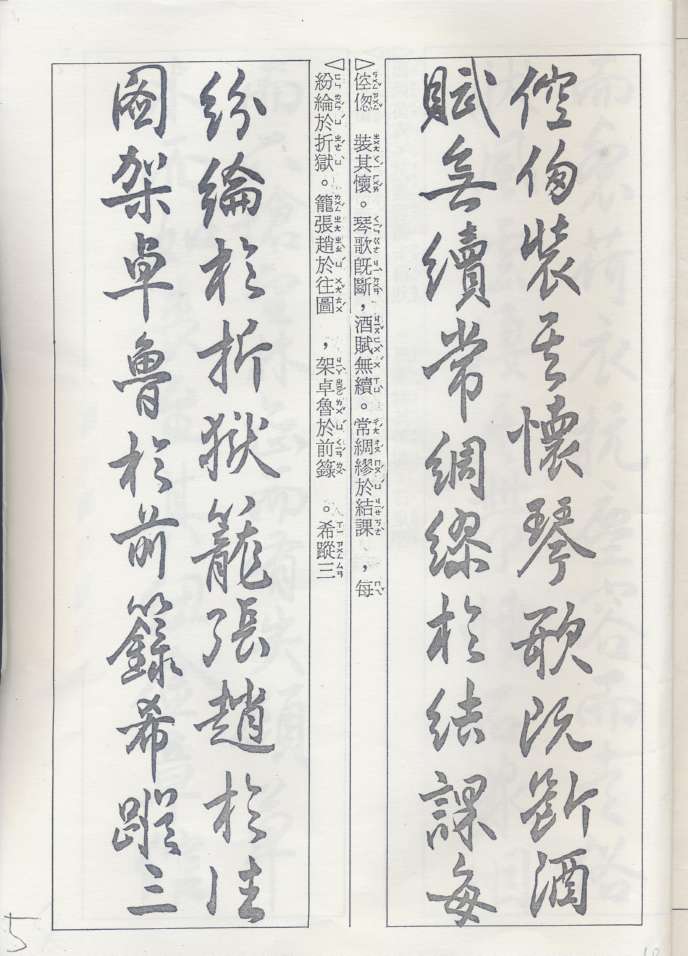 倥偬裝其懷琴歌既斷酒
賦無續常綢繆於結課每
▷倥偬 裝其懷。琴歌既斷,酒賦無續。常綢繆於結課 ,每
◁紛綸於折獄。籠張趙於往圖 ,架卓魯於前籙 。希蹤三
紛綸於折獄籠張趙於往
圖架卓魯於前籙希蹤三
5